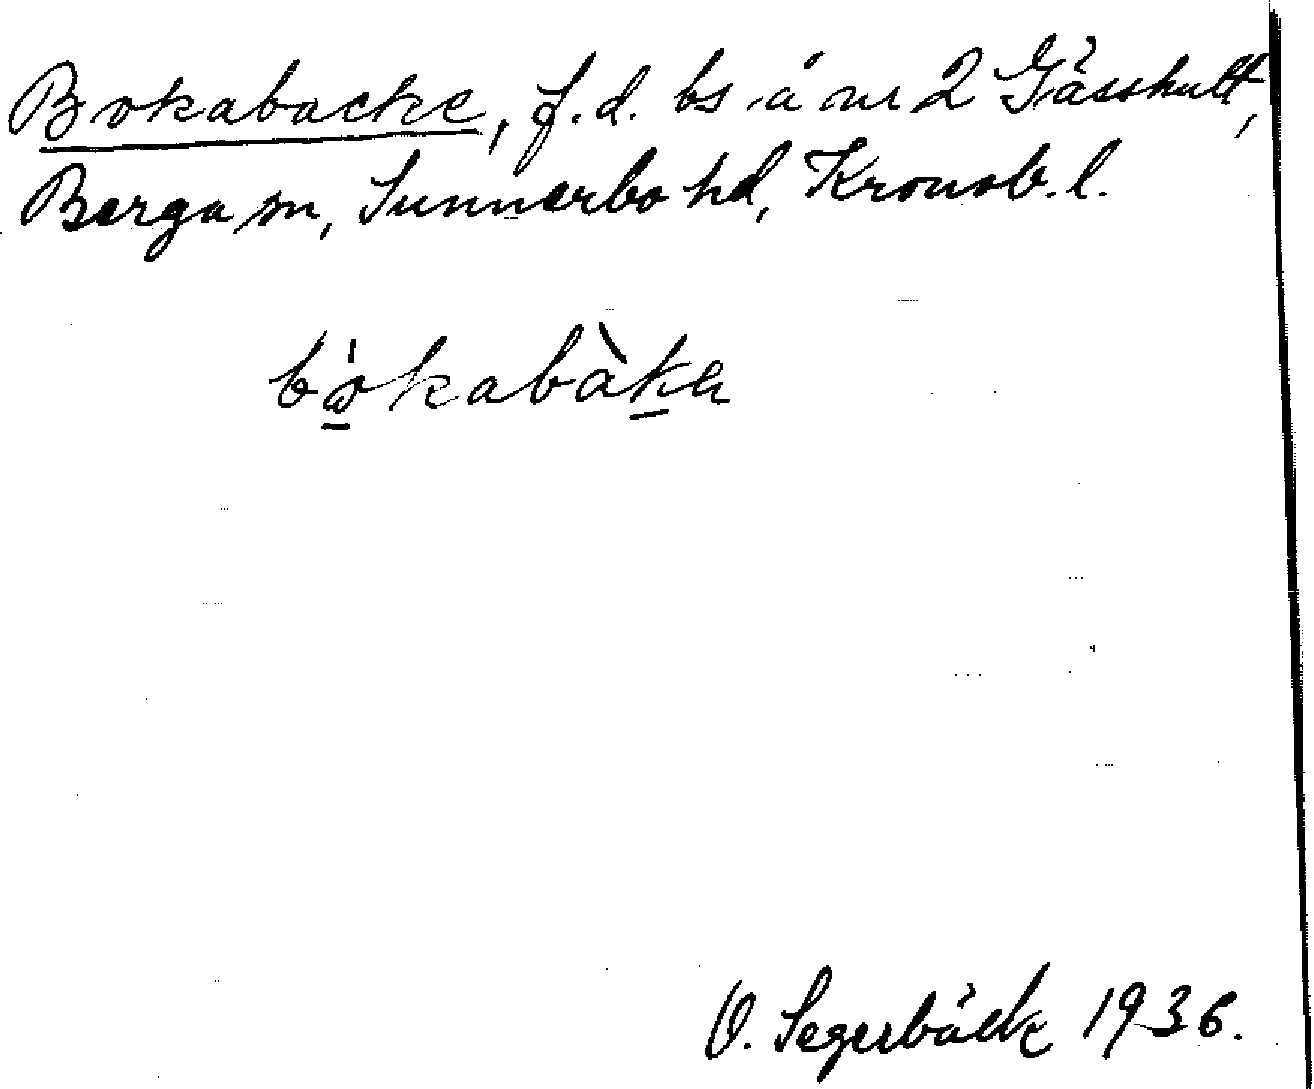 Bokabacke, f.d. bs å nr 2 Gässhult,
Berga sn, Sunnerbo hd, Kronob. l.
bo̱kabàḵa
O. Segerbäck 1936.